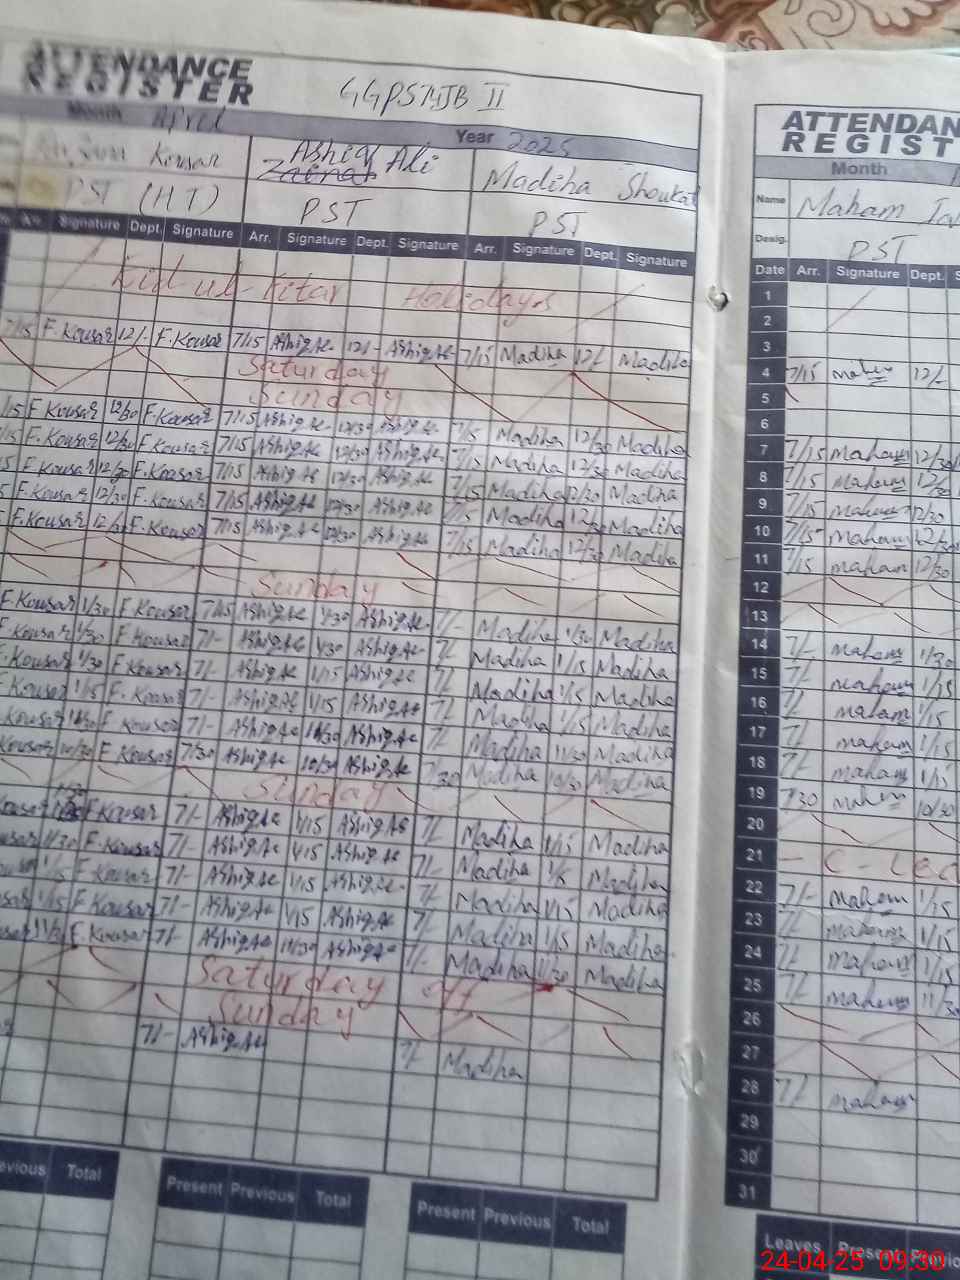 ATTENDANCE
REGISTER
GGPS
II
Month April Year 2025
Kousar Ashiq Ali Madiha Shoukat
PST (HT) PST PST
Signature Dept. Signature Arr. Signature Dept. Signature Arr. Signature Dept. Signature
Eid-ul-Fitar Holidays
7/15 F.Kousar 12/- F.Kousar 7/15 Ashiq Ali 12/- Ashiq Ali 7/15 Madiha 12/- Madiha
Saturday
Sunday
F.Kousar 12/30 F.Kousar 7/15 Ashiq Ali 12/30 Ashiq Ali 7/15 Madiha 12/30 Madiha
F.Kousar 12/30 F.Kousar 7/15 Ashiq Ali 12/30 Ashiq Ali 7/15 Madiha 12/30 Madiha
F.Kousar 12/30 F.Kousar 7/15 Ashiq Ali 12/30 Ashiq Ali 7/15 Madiha 12/30 Madiha
F.Kousar 12/30 F.Kousar 7/15 Ashiq Ali 12/30 Ashiq Ali 7/15 Madiha 12/30 Madiha
F.Kousar F.Kousar 7/15 Ashiq Ali 12/30 Ashiq Ali 7/15 Madiha 12/30 Madiha
Sunday
F.Kousar 1/30 F.Kousar 7/15 Ashiq Ali 1/30 Ashiq Ali 7/- Madiha 1/30 Madiha
F.Kousar 1/30 F.Kousar 7/- Ashiq Ali 1/30 Ashiq Ali 7/- Madiha 1/15 Madiha
F.Kousar 1/30 F.Kousar 7/- Ashiq Ali 1/15 Ashiq Ali 7/- Madiha 1/15 Madiha
F.Kousar 1/15 F.Kousar 7/- Ashiq Ali 1/15 Ashiq Ali 7/- Madiha 1/15 Madiha
Kousar F.Kousar 7/- Ashiq Ali Ashiq Ali 7/- Madiha 11/30 Madiha
Kousar 10/30 F.Kousar 7/30 Ashiq Ali 10/30 Ashiq Ali 7/30 Madiha 10/30 Madiha
Sunday
F.Kousar 7/- Ashiq Ali 1/15 Ashiq Ali 7/- Madiha 1/15 Madiha
1/30 F.Kousar 7/- Ashiq Ali 1/15 Ashiq Ali 7/- Madiha 1/15 Madiha
1/15 F.Kousar 7/- Ashiq Ali 1/15 Ashiq Ali 7/- Madiha 1/15 Madiha
1/15 F.Kousar 7/- Ashiq Ali 1/15 Ashiq Ali 7/- Madiha 1/15 Madiha
F.Kousar 7/- Ashiq Ali 11/30 Ashiq Ali 7/- Madiha Madiha
Saturday off
Sunday
7/- Ashiq Ali 7/- Madiha
Total Present Previous Total Present Previous Total
ATTENDAN
REGIST
Month
Name Maham
Desig. PST
Date Arr. Signature Dept.
1
2
3
4 7/15 Maham 12/-
5
6
7 7/15 Maham 12/30
8 7/15 Maham 12/30
9 7/15 Maham 12/30
10 7/15 Maham 12/30
11 7/15 Maham 12/30
12
13
14 7/- Maham 1/30
15 7/- Maham 1/15
16 7/- Maham 1/15
17 7/- Maham 1/15
18 7/- Maham 1/15
19 7/30 Maham 10/30
20
21 - C - Lea
22 7/- Maham 1/15
23 7/- Maham 1/15
24 7/- Maham 1/15
25 7/- Maham 11/30
26
27
28 7/- Maham
29
30
31
Leaves Present Previo
24-04-25 09:30